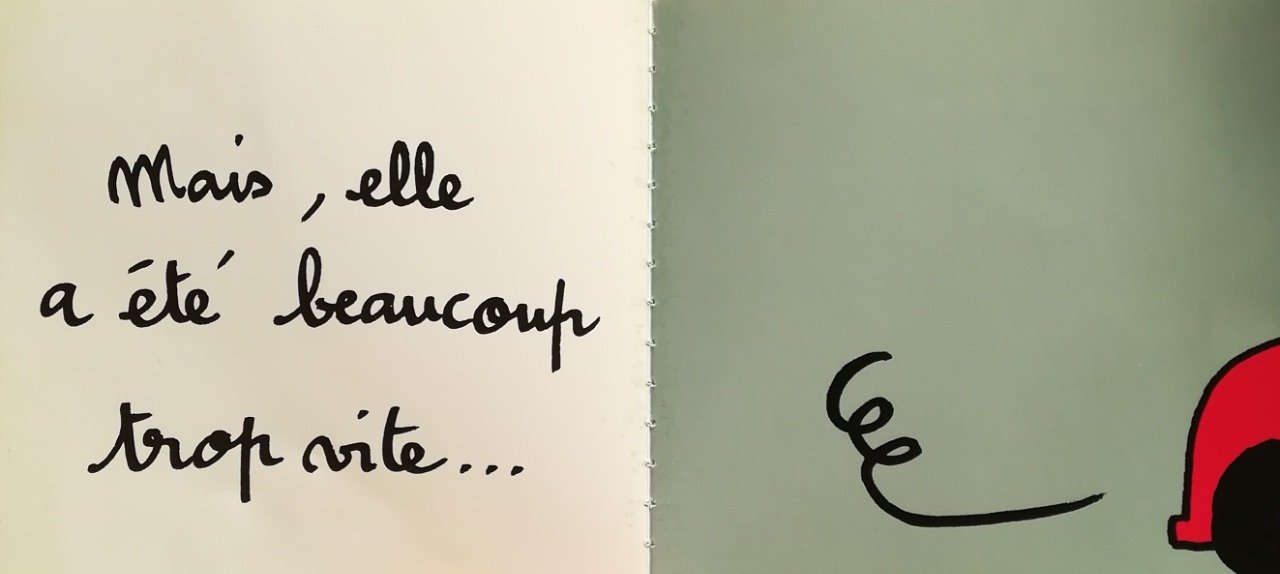 Mais, elle
a été beaucoup
trop vite...